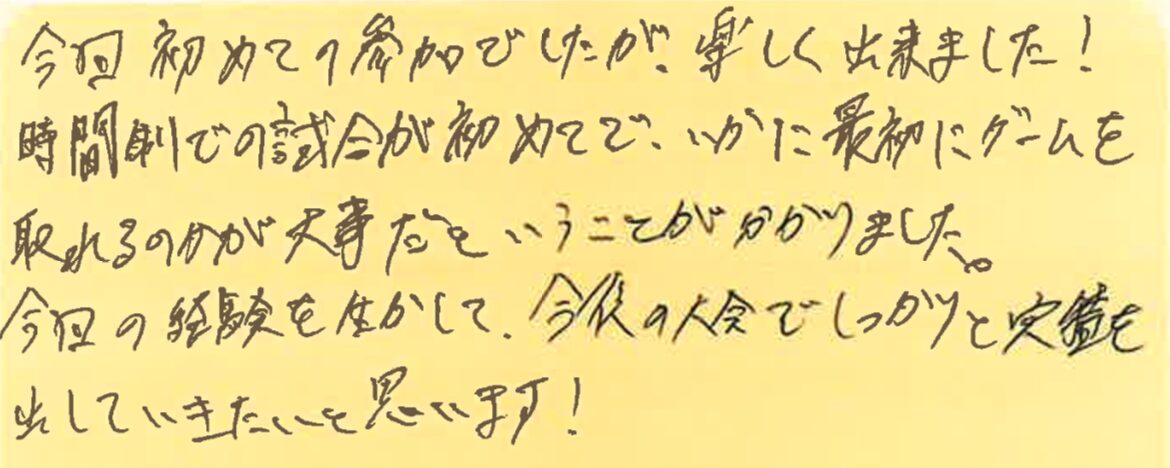 今回初めての参加でしたが、楽しく出来ました！
時間制での試合が初めてで、いかに最初にゲームを
取れるのかが大事だということが分かりました。
今回の経験を生かして、今後の大会でしっかりと実績を
出していきたいと思います！